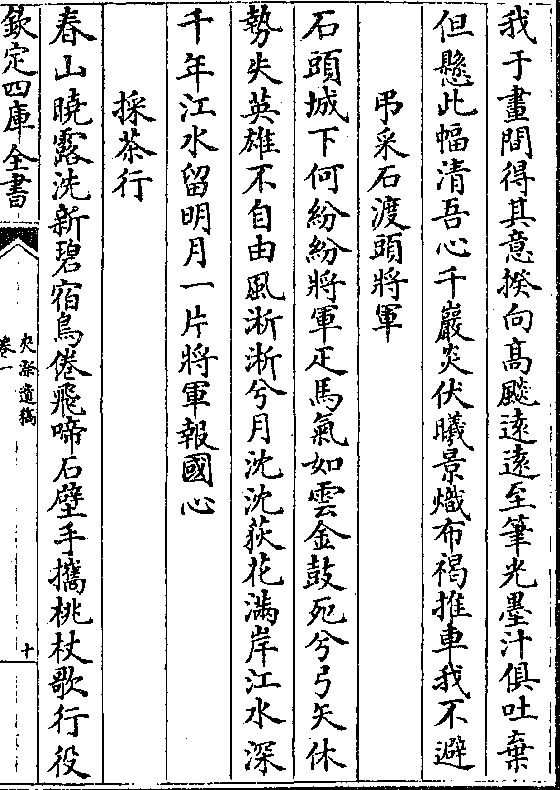 我于畫間得其意揆向髙飈逺逺至筆光墨汁俱吐棄
但懸此幅清吾心千巖炎伏曦景熾布褐推車我不避
弔采石渡頭將軍
石頭城下何紛紛將軍疋馬氣如雲金鼓死兮弓矢休
勢失英雄不自由風淅淅兮月沈沈荻花滿岸江水深
千年江水留明月一片將軍報國心
採茶行
春山曉露洗新碧宿鳥倦飛啼石壁手攜桃杖歌行役
欽定四庫全書
夾漈遺稿
卷一
十